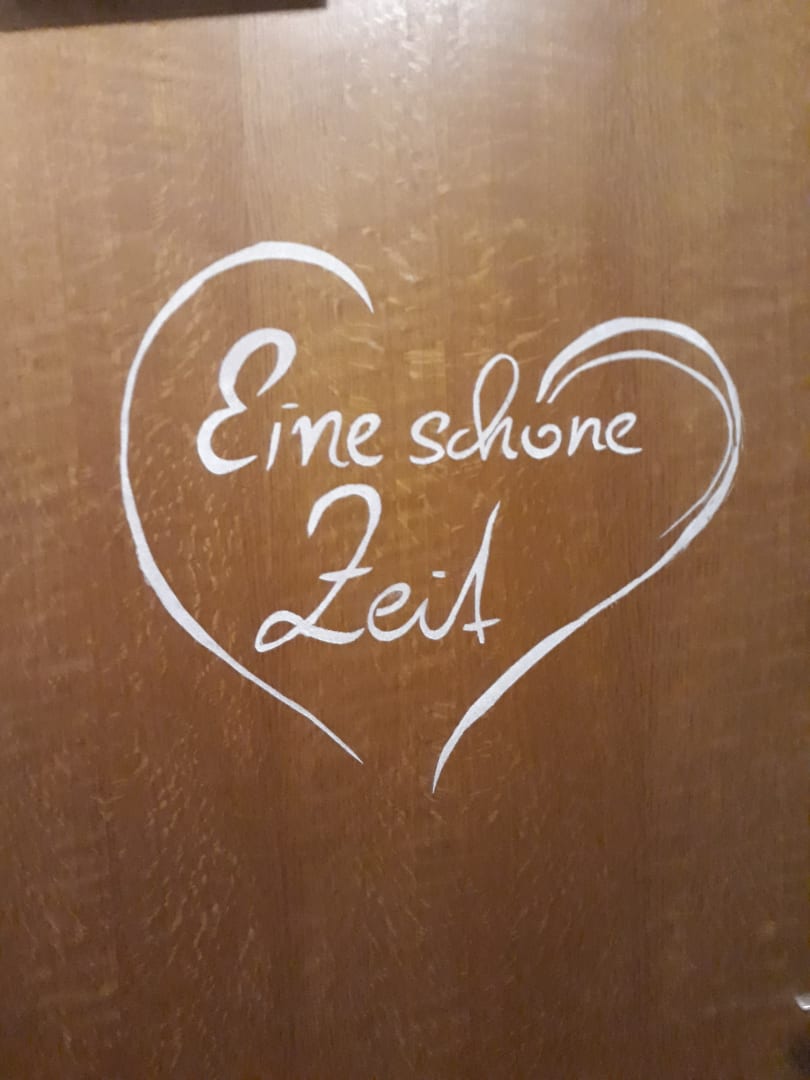 Eine schöne
Zeit